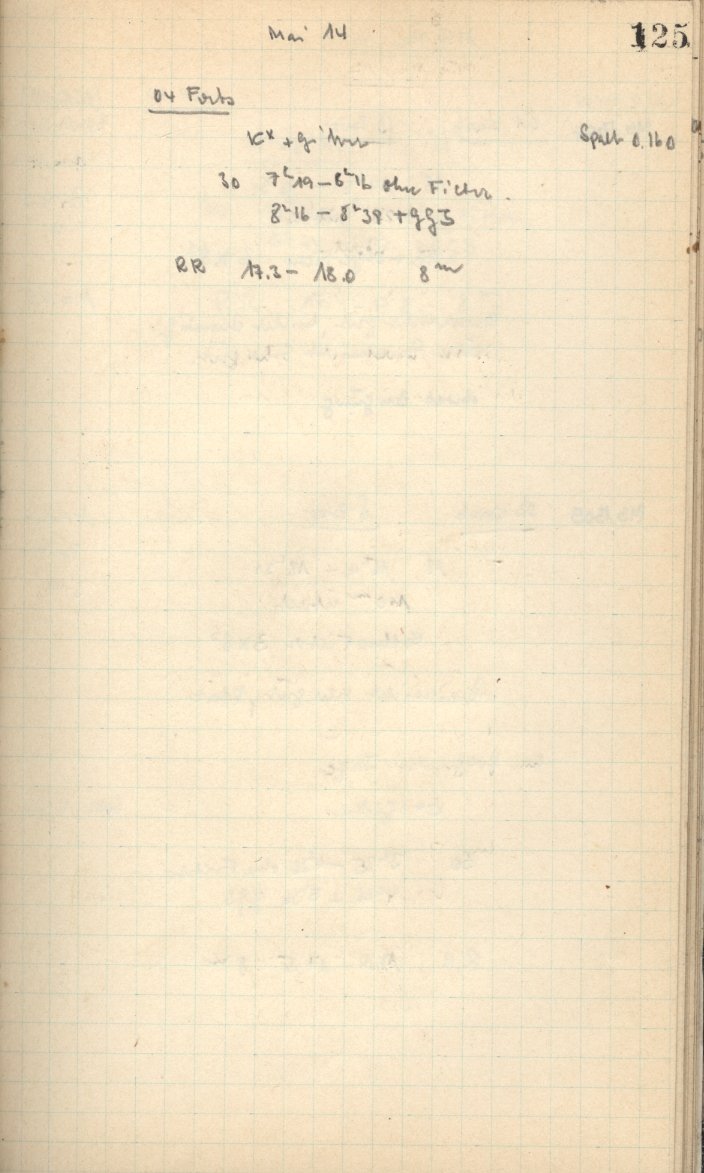 Mai 14
125
04 Forts
Spalt 0.160
30 7ʰ19 – 8ʰ16 ohne Filter.
8ʰ16 – 8ʰ39 + gg3
RR 17.3 – 18.0 8ᵐ